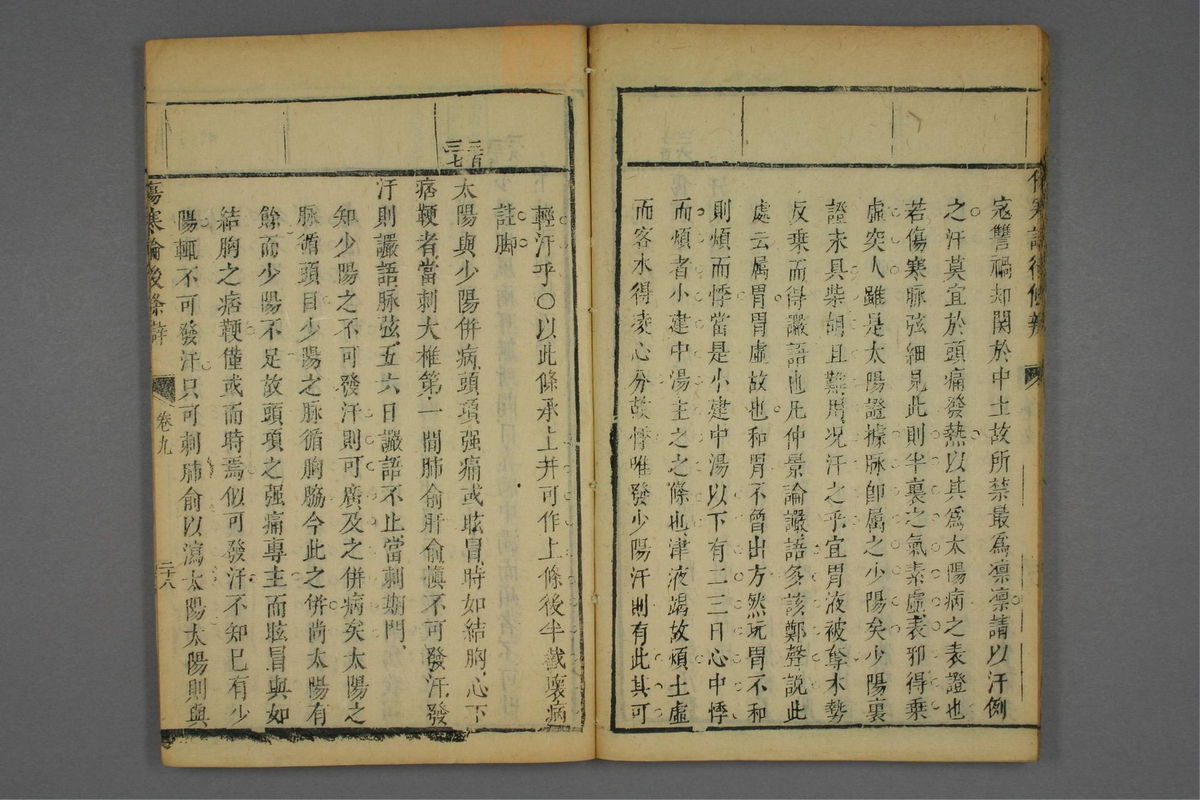 寇讐禍却関於中土故所禁最爲凛凛請以汗例
之汗莫宜於頭痛發熱以其爲太陽病之表證也
若傷寒脉弦細見此則半裏之氣素虛表邪得乗
虛突人雖是太陽證據脉卽属之少陽矣少陽裏
證未具柴胡且難用况汗之乎宜胃液被奪木勢
反乗而得讝語也凡仲景論讝語多該鄭聲説此
處云属胃胃虛故也和胃不曾出方然玩胃不和
則煩而悸當是小建中湯以下有二三日心中悸
而煩者小建中湯主之之條也津液竭故煩土虛
而客水得凌心分故悸唯發少陽汗則有此其可
輕汗乎〇以此條承上并可作上條後半截壞病
註脚
二百三七
太陽與少陽併病頭項强痛或眩冒時如結胸心下
痞鞕者當刺大椎第一間肺俞肝俞愼不可發汗發
汗則讝語脉弦五六日讝語不止當刺期門
知少陽之不可發汗則可廣及之併病矣太陽之
脉循頭目少陽之脉循胸脇今此之併尚太陽有
餘而少陽不足故頭項之强痛專主而眩冒與如
結胸之痞鞕僅或而時焉似可發汗不知已有少
陽輒不可發汗只可刺肺俞以瀉太陽太陽則與
傷寒論後條辯
卷九
二十八